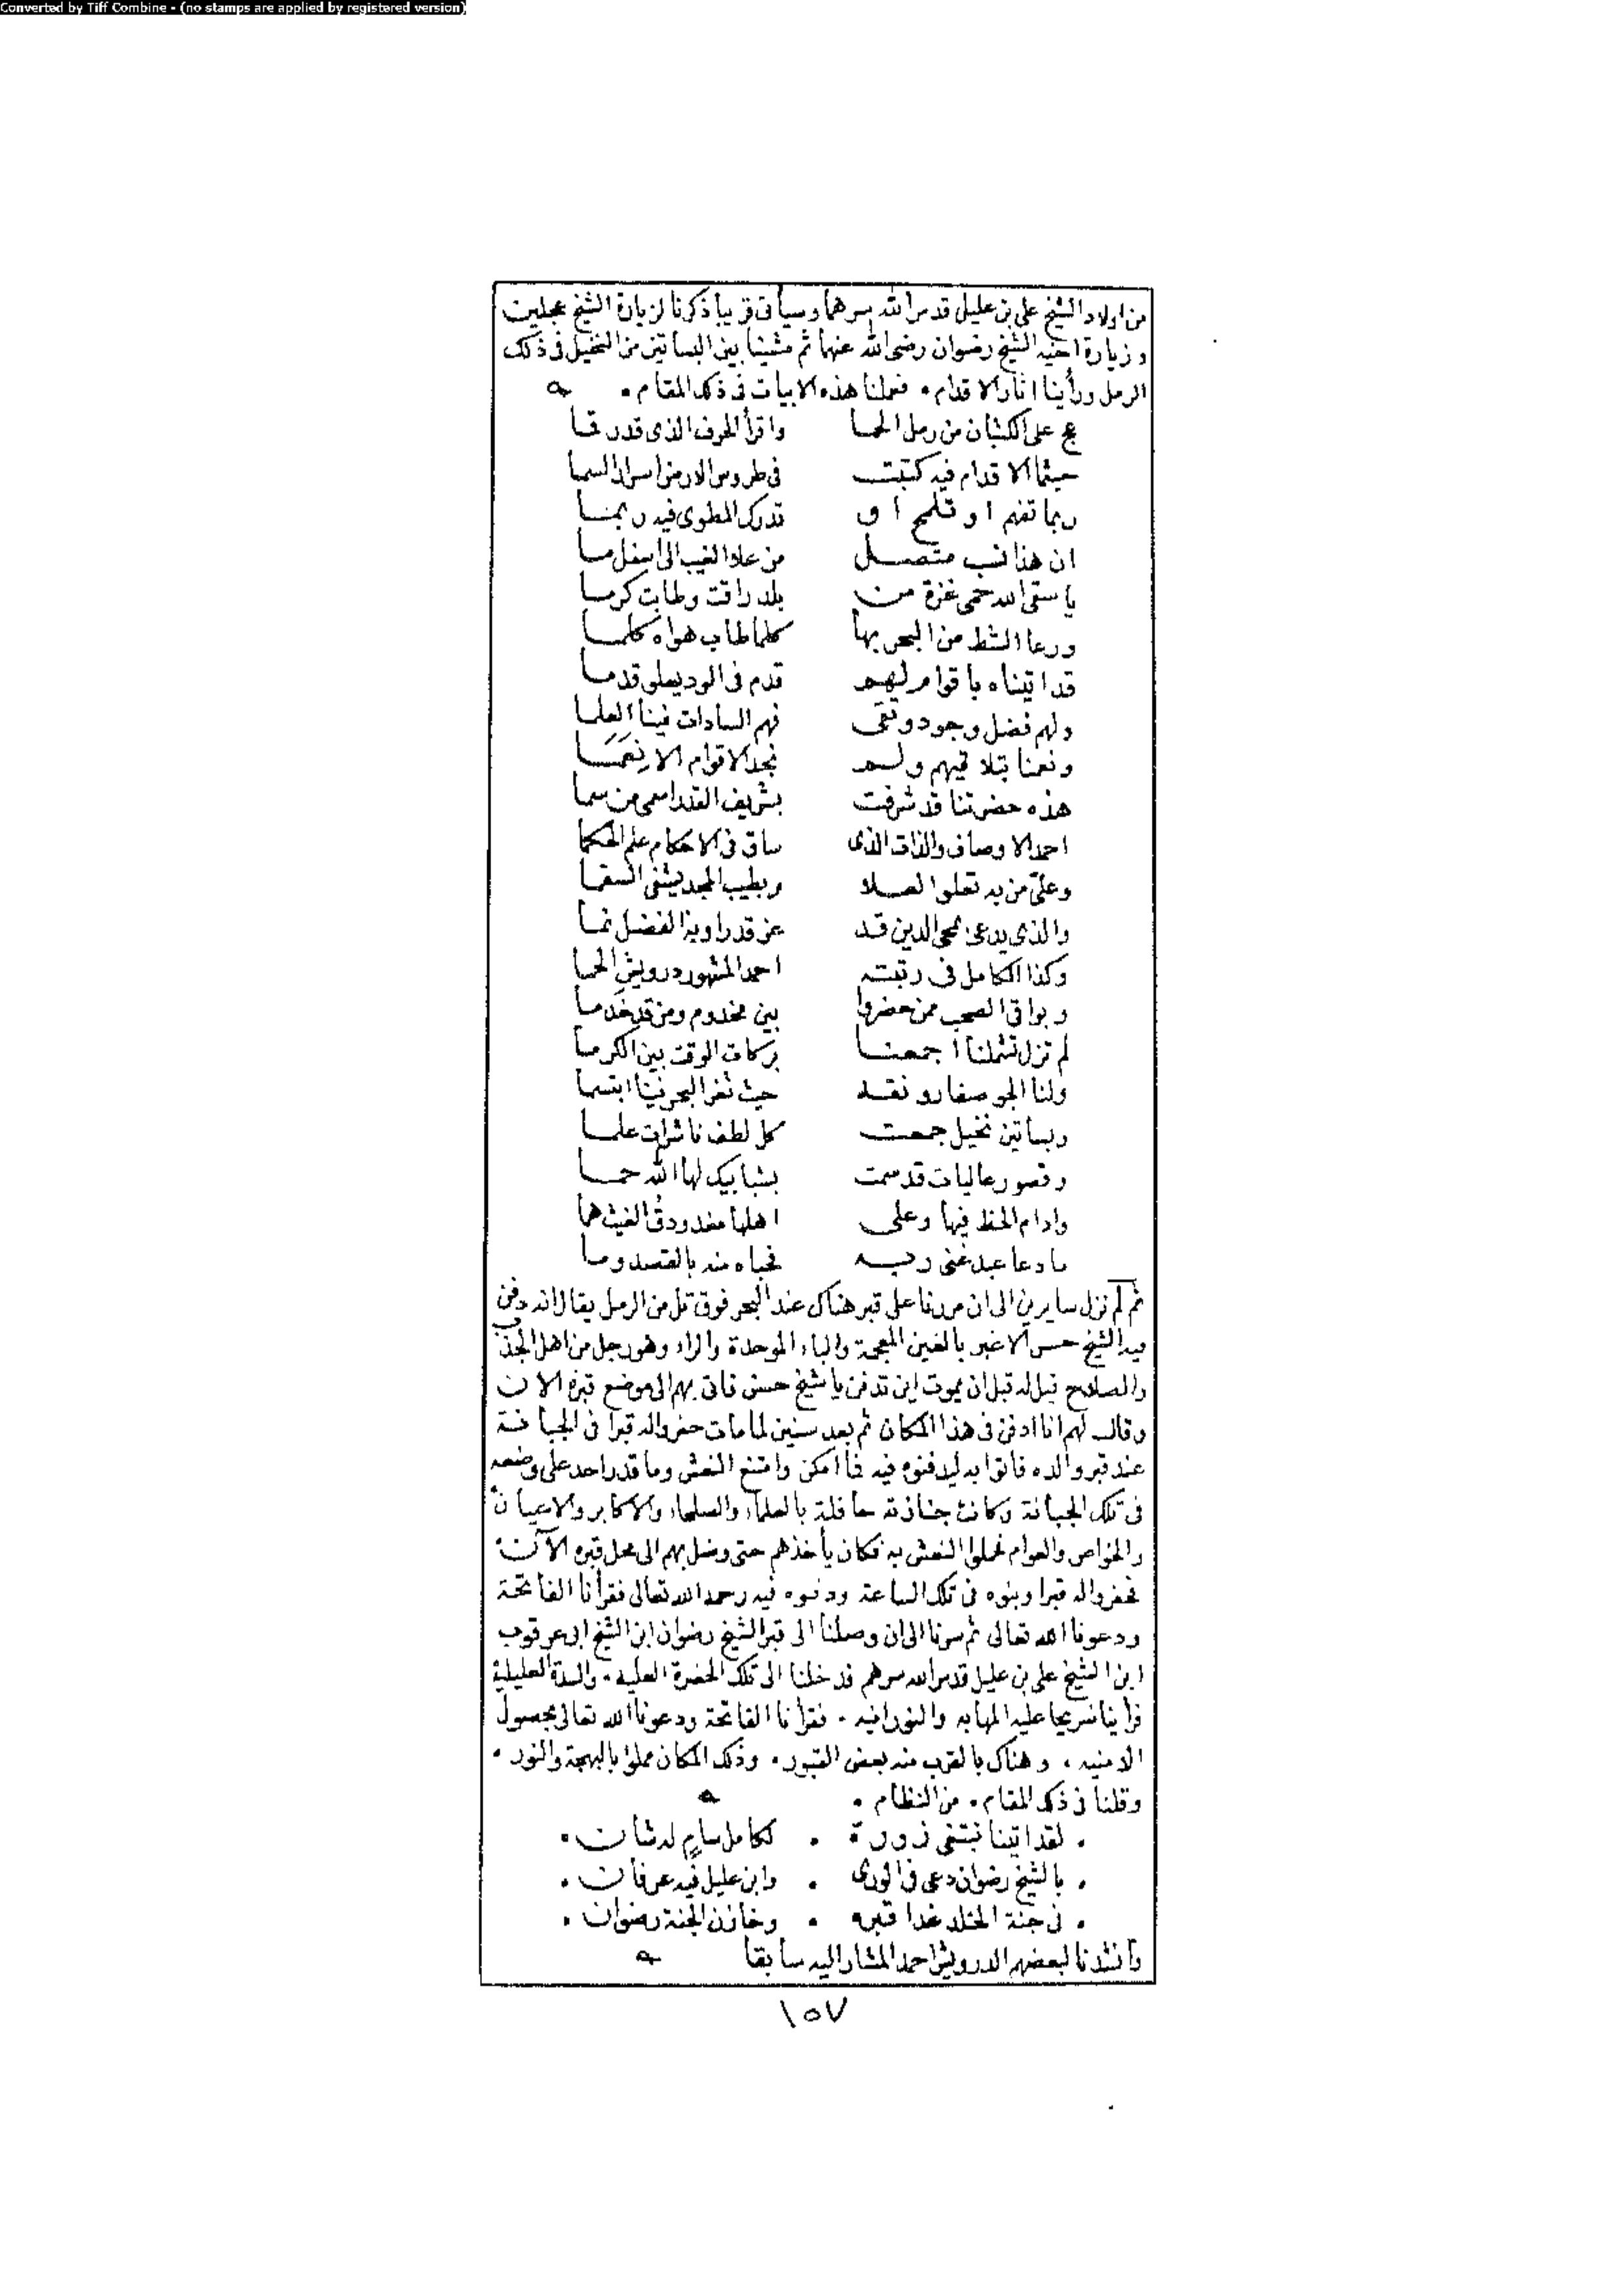 Converted by Tiff Combine - (no stamps are applied by registered version)
من اولاد الشيخ على بن عليل قدس الله سرهما وسيأتى قريبا ذكرنا لزيارة الشيخ عجلين
وزيارة اخيه الشيخ رضوان رضى الله عنهما ثم مشينا بين البساتين من النخيل فى ذلك
الرمل ورأينا اثار الاقدام . فعملنا هذه الابيات فى ذلك المقام .
عج على الكثبان من رمل الحما واقرأ الحرف الذى قد رقما
حيثما الاقدام فيه كتبت فى طروس الارض اسرار السما
ربما تفهم او تلمح او تدرك المطوى فيه ربما
ان هذا نسب متصل من علا الغيب الى اسفل ما
يا سقى الله حمى غزة من بلد راقت وطابت كرما
ورعا الشط من البحر بها كلما طاب هواه كلما
قد اتيناه باقوام لهم قدم فى الود يعلو قدما
ولهم فضل وجود وتقى فهم السادات فينا العلما
ونعمنا بتلاقيهم ولم نجد الاقوام الا نعما
هذه حضرتنا قد شرفت بشريف القدر اسمى من سما
احمد الاوصاف والذات الذى ساق فى الاحكام علم الحكما
وعلىّ من به تعلو العلا وبطيب المجد يشفى السقما
والذى يدعى بمحى الدين قد عز قدرا وبذا الفضل نما
وكذا الكامل فى رتبته احمد المشهور درويش الحما
وبواقى الصحب ممن حضروا بين مخدوم ومن قد خدما
لم تزل تشملنا اجمعنا بركات الوقت بين الكرما
ولنا الجو صفا رونقه حيث ثغر البحر فينا ابتسما
وبساتين نخيل جمعت كل لطف ناشرات علما
وقصور عاليات قد سمت بشبابيك لها الله حما
وادام الحظ فيها وعلى اهلها مغدودق الغيث هما
ما دعا عبد غنى ربه فحباه منه بالقصد وما
ثم لم نزل سايرين الى ان مررنا على قبر هناك عند البحر فوق تل من الرمل يقال انه دفن
فيه الشيخ حسن الاغبر بالغين المعجمة والباء الموحدة والراء وهو رجل من اهل الجذب
والصلاح قيل له قبل ان يموت اين تدفن يا شيخ حسن فاتى بهم الى موضع قبره الان
وقال لهم انا ادفن فى هذا المكان ثم بعد سنين لما مات حفروا له قبرا فى الجبانة
عند قبر والده فاتوا به ليدفنوه فيه فما امكن وامتنع النعش وما قدر احد على وضعه
فى تلك الجبانة وكانت جنازته حافلة بالعلماء والصلحاء والاكابر والاعيان
والخواص والعوام فحملوا النعش به فكان يأخذهم حتى وصل بهم الى محل قبره الآن .
فحفروا له قبرا وبنوه فى تلك الساعة ودفنوه فيه رحمه الله تعالى فقرأنا الفاتحة
ودعونا الله تعالى ثم سرنا الى ان وصلنا الى قبر الشيخ رضوان ابن الشيخ ابى عرقوب
ابن الشيخ على بن عليل قدس الله سرهم فدخلنا الى تلك الحضرة العليه . والسدة العليلية
فرأينا ضريحا عليه المهابه والنورانيه . فقرأنا الفاتحة ودعونا الله تعالى بحصول
الامنيه . وهناك بالقرب منه بعض القبور . وذلك المكان مملؤ بالبهجة والنور .
وقلنا فى ذلك المقام . من النظام .
. لقد اتينا نبتغى زورة . لكامل سامٍ له شان .
. بالشيخ رضوان دعى فى الورى . وابن عليل فيه عرفان .
. فى جنة الخلد غدا قبره . وخازن الجنة رضوان .
وأنشدنا لبعضهم الدرويش احمد المشار اليه سابقا
١٥٧